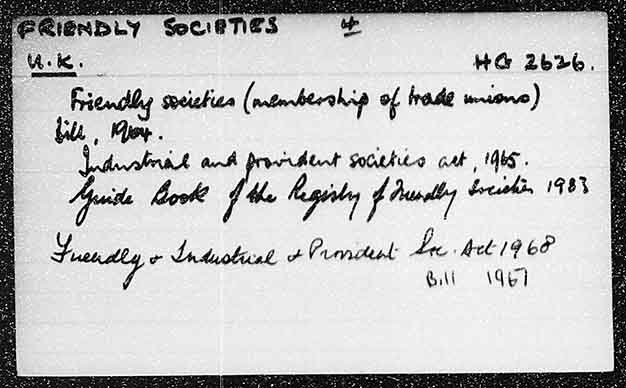 FRIENDLY SOCIETIES 4
U.K. HG 2626.
Friendly societies (membership of trade unions)
bill, 1964.
Industrial and provident societies act, 1965.
Guide Book of the Registry of Friendly Societies 1983
Friendly & Industrial & Provident Soc. Act 1968
Bill 1967